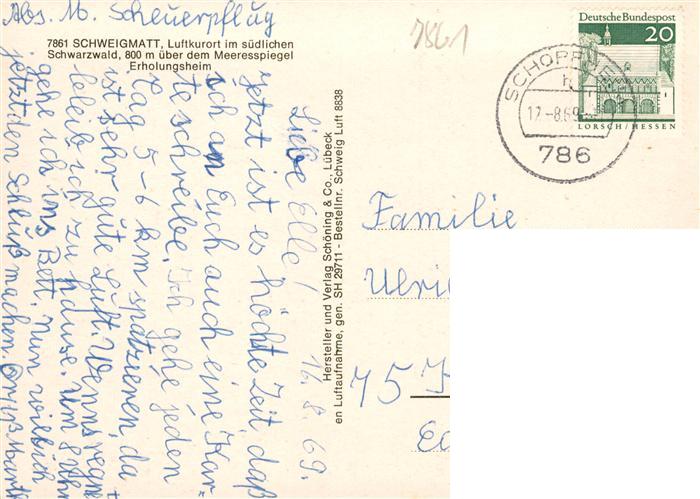 Abs. M. Scheuerpflug
7861 SCHWEIGMATT, Luftkurort im südlichen
Schwarzwald, 800 m über dem Meeresspiegel
Erholungsheim
7861
Deutsche Bundespost
20
LORSCH/HESSEN
SCHOPF
17.-8.69
786
16.8.69.
Liebe Elle!
Jetzt ist es höchte Zeit daß
ich an Euch auch eine Kar-
te schreibe. Ich gehe jeden
Tag 5-6 km spatzieren, da
ist sehr gute Luft. Wenns regn
bleib ich zu hause. Um 8 Uhr
gehe ich ins Bett. Nun will ich
jetzt den Schluß machen. Gruß
Hersteller und Verlag Schöning & Co., Lübeck
en Luftaufnahme, gen. SH 29711 - Bestellnr. Schweig Luft 8838
Familie
Ulri
75